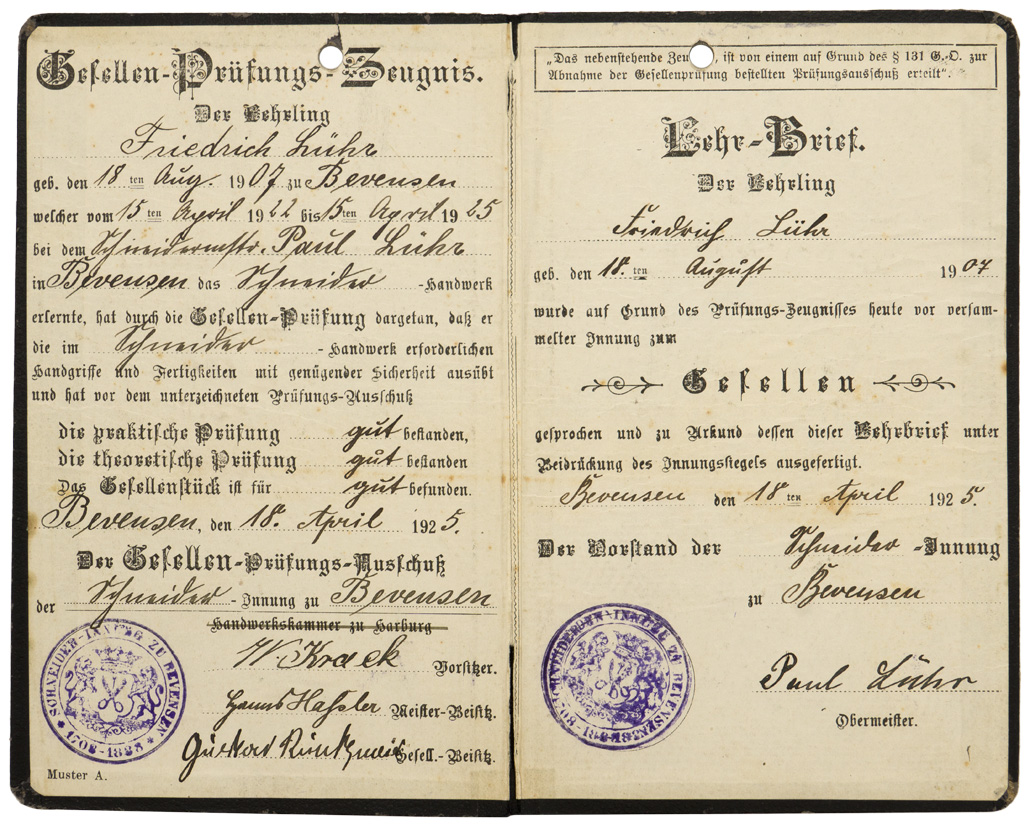 Gesellen-Prüfungs-Zeugnis.
Der Lehrling
Friedrich Lühr
geb. den 18 ten Aug. 1907 zu Bevensen
welcher vom 15 ten April 1922 bis 15 ten April 1925
bei dem Schneidermstr. Paul Lühr
in Bevensen das Schneider -Handwerk
erlernte, hat durch die Gesellen-Prüfung dargetan, daß er
die im Schneider - Handwerk erforderlichen
Handgriffe und Fertigkeiten mit genügender Sicherheit ausübt
und hat vor dem unterzeichneten Prüfungs-Ausschuß
die praktische Prüfung gut bestanden,
die theoretische Prüfung gut bestanden
Das Gesellenstück ist für gut befunden.
Bevensen, den 18. April 1925.
Der Gesellen-Prüfungs-Ausschuß
der Schneider - Innung zu Bevensen
Handwerkskammer zu Harburg
Vorsitzer.
Meister-Beisitz.
Gesell.-Beisitz.
SCHNEIDER-INNUNG ZU BEVENSEN
Muster A.
„Das nebenstehende Zeu , ist von einem auf Grund des § 131 G.-O. zur
Abnahme der Gesellenprüfung bestellten Prüfungsausschuß erteilt".
Lehr-Brief.
Der Lehrling
Friedrich Lühr
geb. den 18. ten August 1907
wurde auf Grund des Prüfungs-Zeugnisses heute vor versam-
melter Innung zum
Gesellen
gesprochen und zu Urkund dessen dieser Lehrbrief unter
Beidrückung des Innungssiegels ausgefertigt.
Bevensen den 18 ten April 1925.
Der Vorstand der Schneider -Innung
zu Bevensen
Paul Lühr
Obermeister.